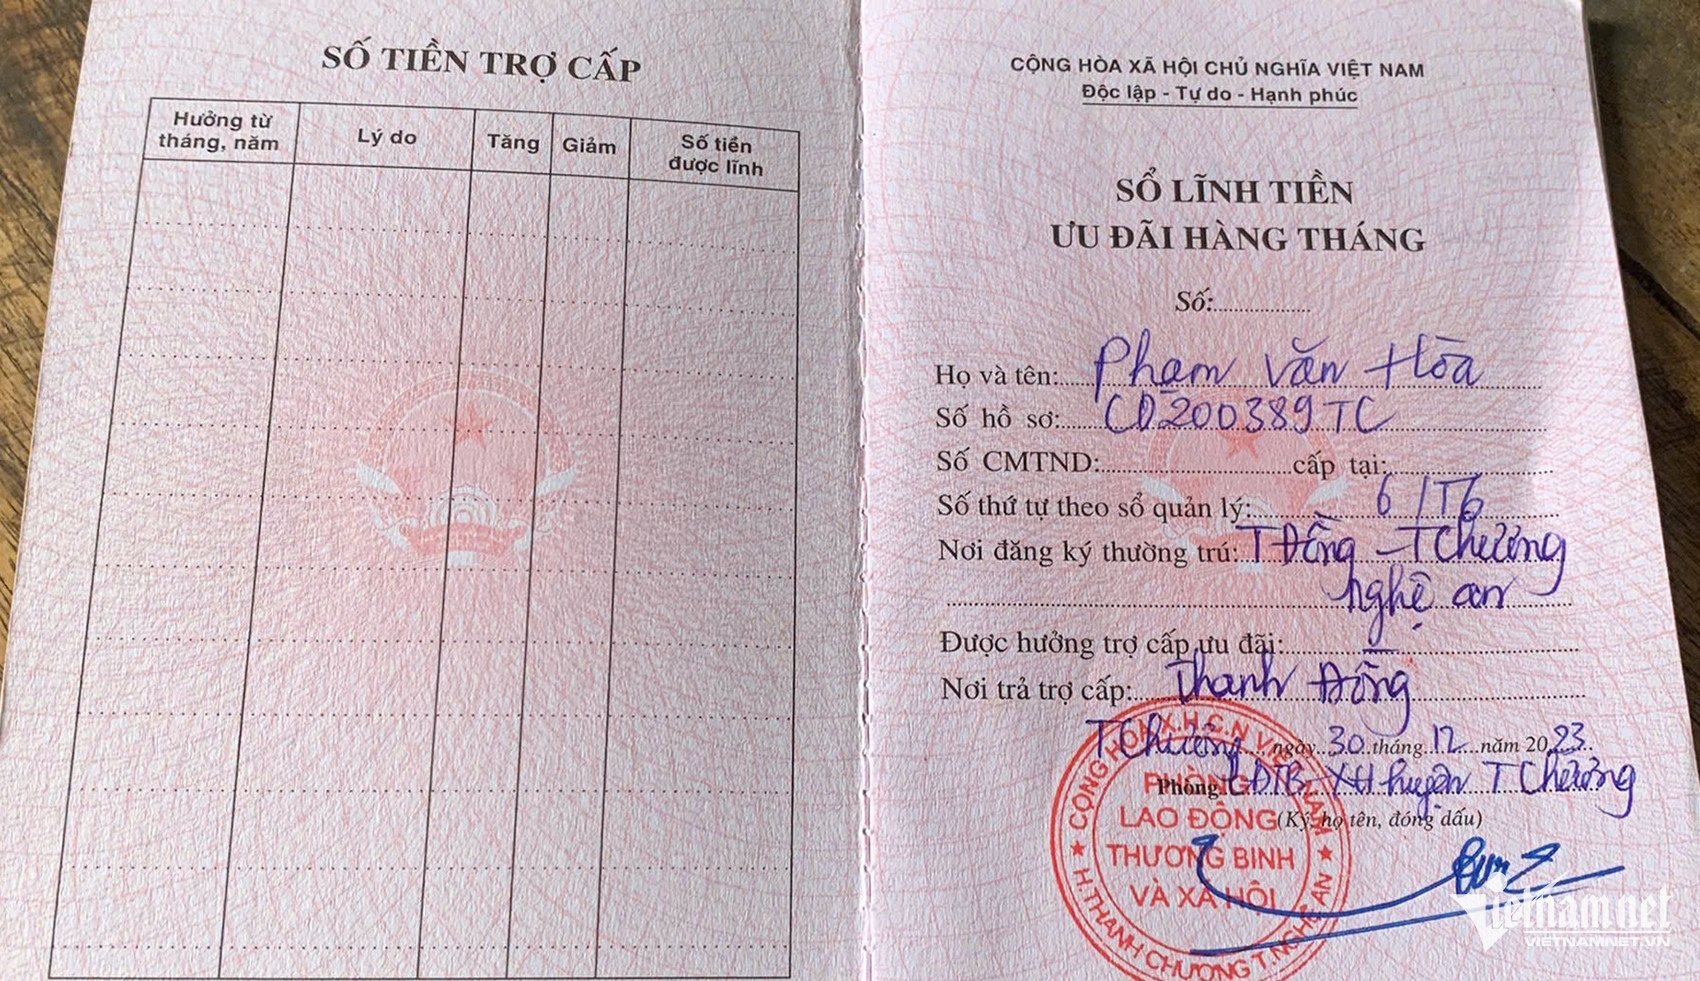 SỐ TIỀN TRỢ CẤP
Hưởng từ tháng, năm
Lý do
Tăng
Giảm
Số tiền được lĩnh
CỘNG HÒA XÃ HỘI CHỦ NGHĨA VIỆT NAM
Độc lập - Tự do - Hạnh phúc
SỔ LĨNH TIỀN
ƯU ĐÃI HÀNG THÁNG
Số:
Họ và tên: Phạm Văn Hòa
Số hồ sơ: CD200389TC
Số CMTND: cấp tại:
Số thứ tự theo sổ quản lý: 6/T6
Nơi đăng ký thường trú: T Đồng - T Chương
Nghệ an
Được hưởng trợ cấp ưu đãi:
Nơi trả trợ cấp: Thanh Đồng
T Chương ngày 30 tháng 12 năm 2023
Phòng LĐTB-XH huyện T Chương
(Ký, họ tên, đóng dấu)
CỘNG HÒA X.H.C.N VIỆT NAM
PHÒNG
LAO ĐỘNG
THƯƠNG BINH
VÀ XÃ HỘI
H.THANH CHƯƠNG T.NGHỆ AN
Vietnam.net
VIETNAMNET.VN